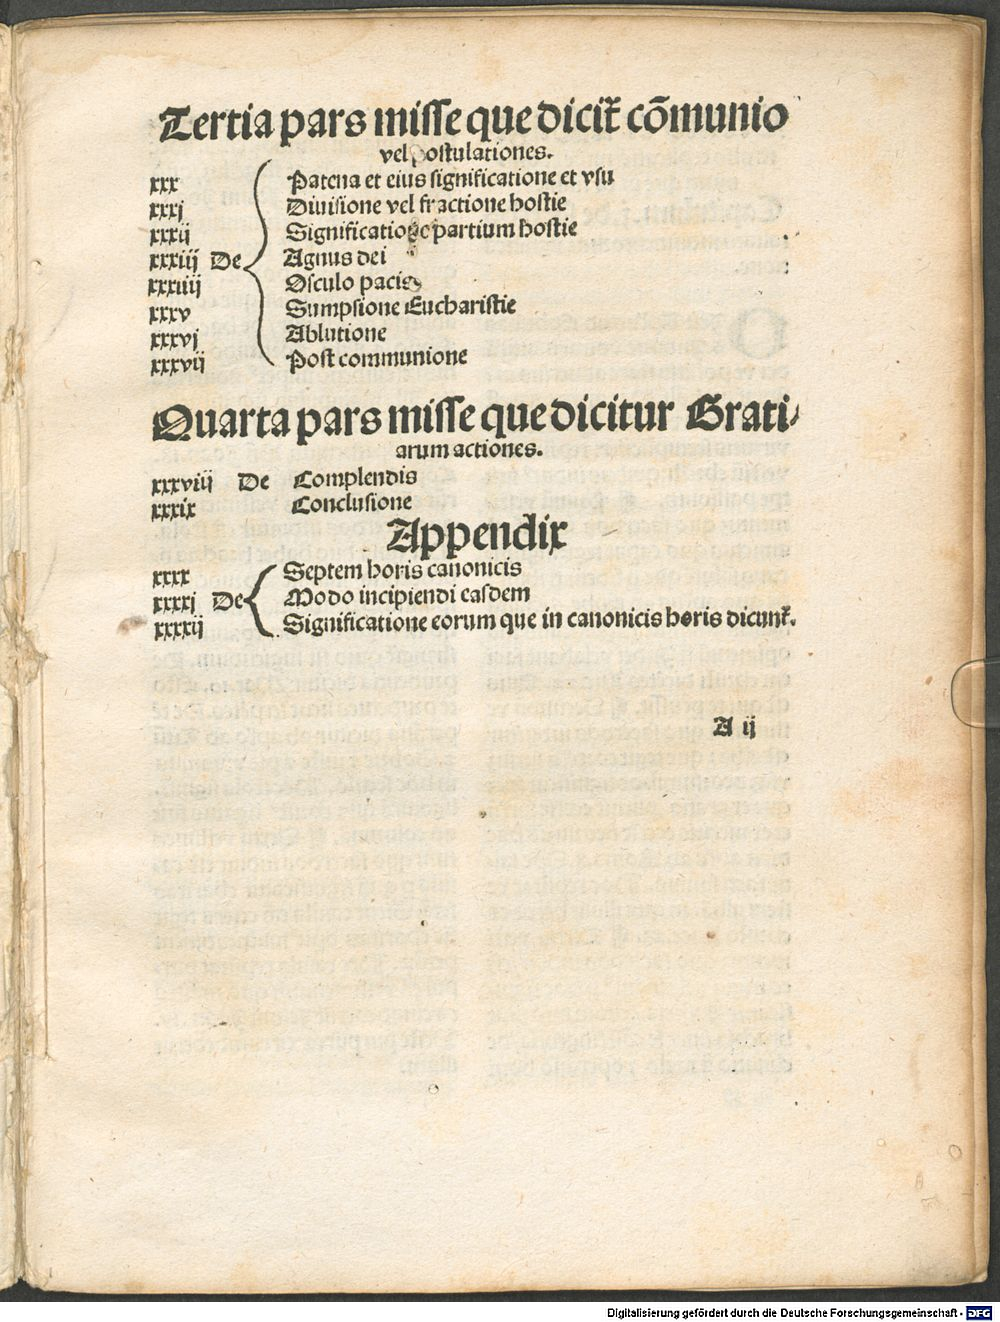 Tertia pars misse que dicit᷑ cõmunio
vel postulationes.
xxx Patena et eius significatione et vsu
xxxj Diuisione vel fractione hostie
xxxij Significatione partium hostie
xxxiij De Agnus dei
xxxiiij Osculo pacis
xxxv Sumpsione Eucharistie
xxxvj Ablutione
xxxvij Post communione
Quarta pars misse que dicitur Grati⸗
arum actiones.
xxxviij De Complendis
xxxix Conclusione
Appendix
xxxx Septem horis canonicis
xxxxj De Modo incipiendi easdem
xxxxij Significatione eorum que in canonicis horis dicunt᷑.
A ij
Digitalisierung gefördert durch die Deutsche Forschungsgemeinschaft - DFG